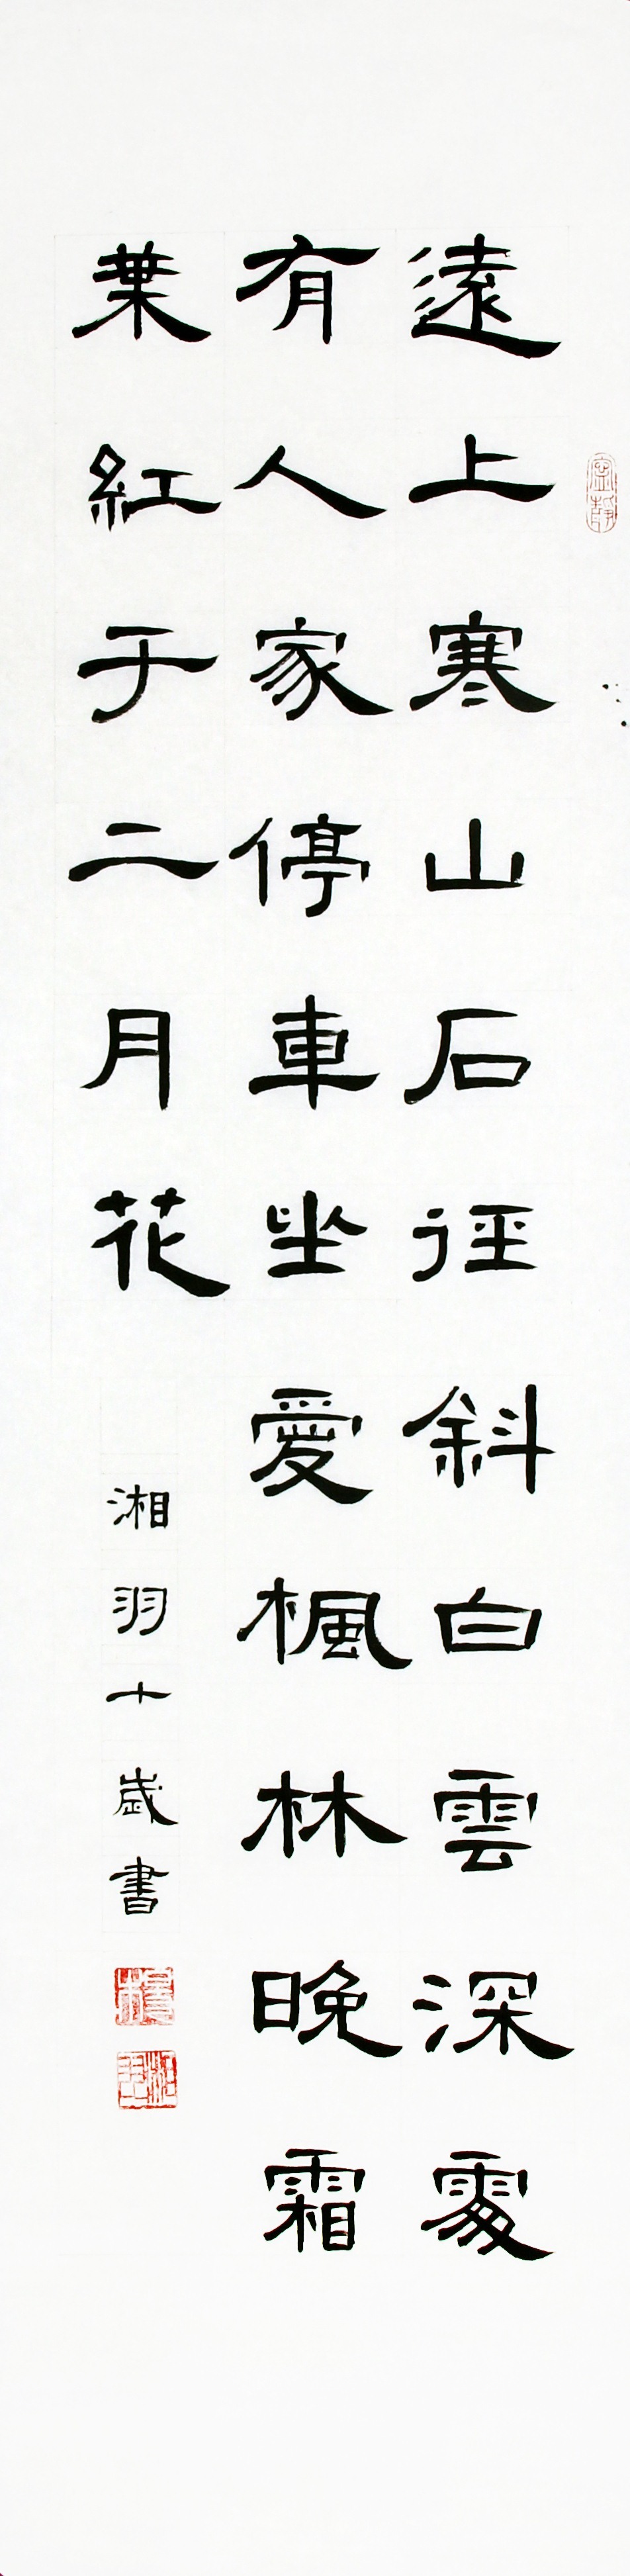 遠上寒山石徑斜白雲深處
有人家停車坐愛楓林晚霜
葉紅于二月花
湘羽十歲書
寧靜